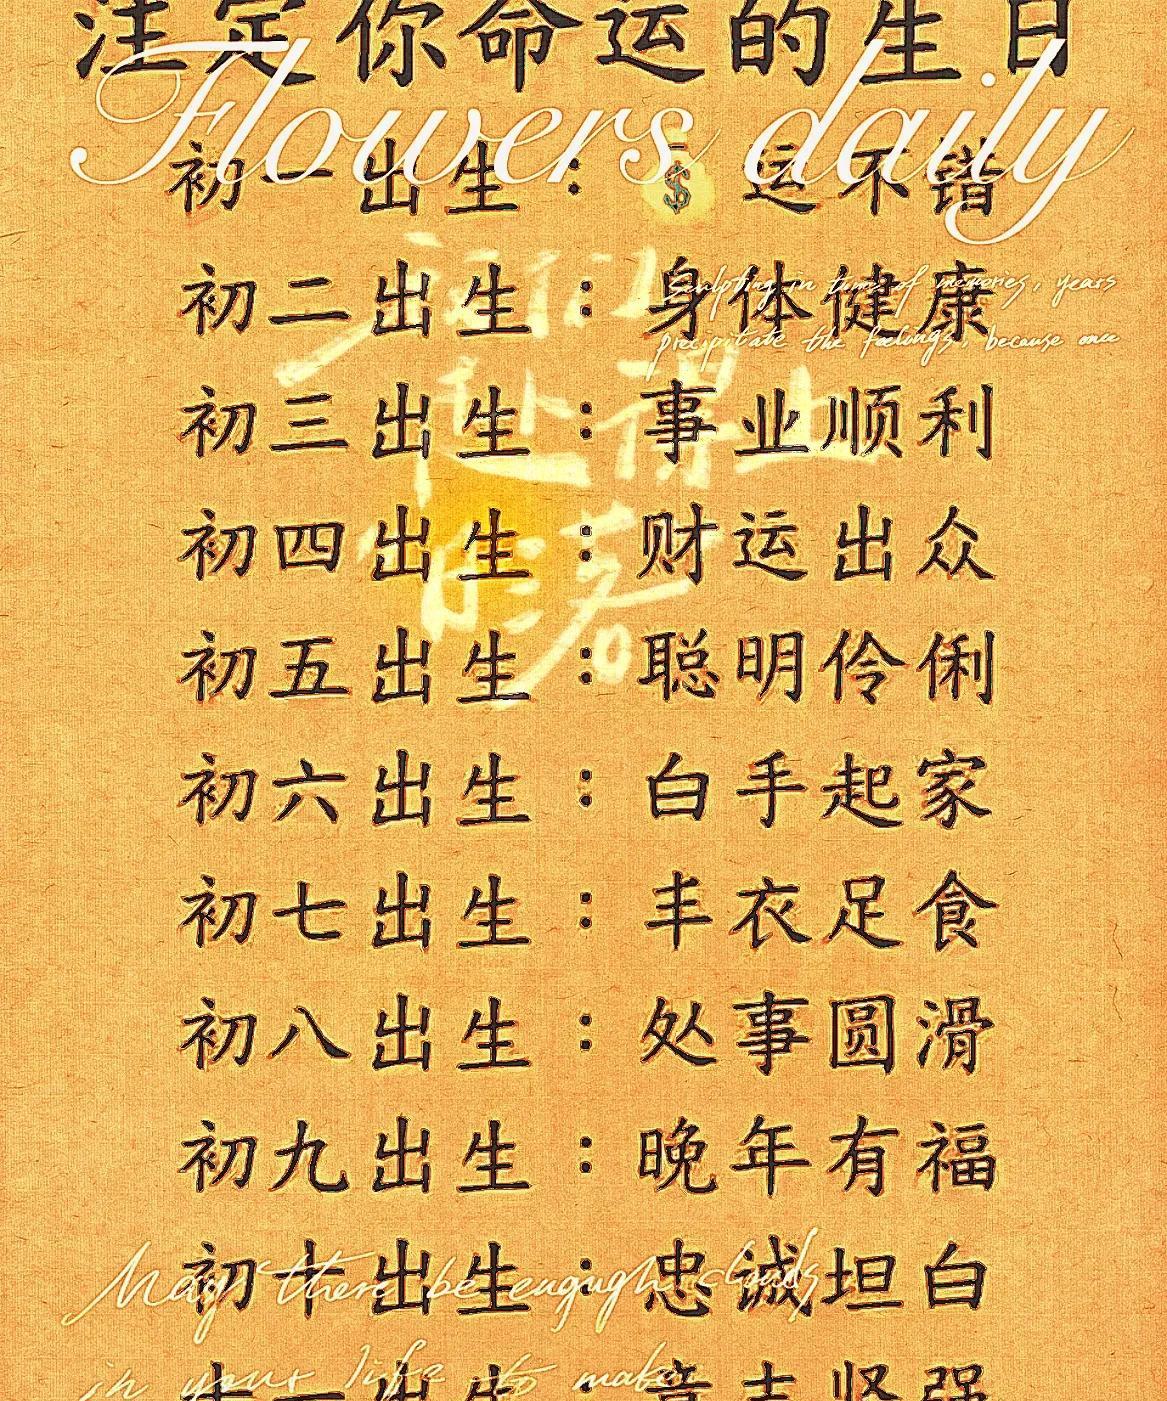 注定你命运的生日
Flowers daily
初一出生：💰运不错
初二出生：身体健康
Sculpting in time of memories, years
precipitate the feelings, because once
初三出生：事业顺利
初四出生：财运出众
初五出生：聪明伶俐
初六出生：白手起家
初七出生：丰衣足食
初八出生：处事圆滑
初九出生：晚年有福
初十出生：忠诚坦白
May there be enough clouds
十一出生：意志坚强
in your life to make